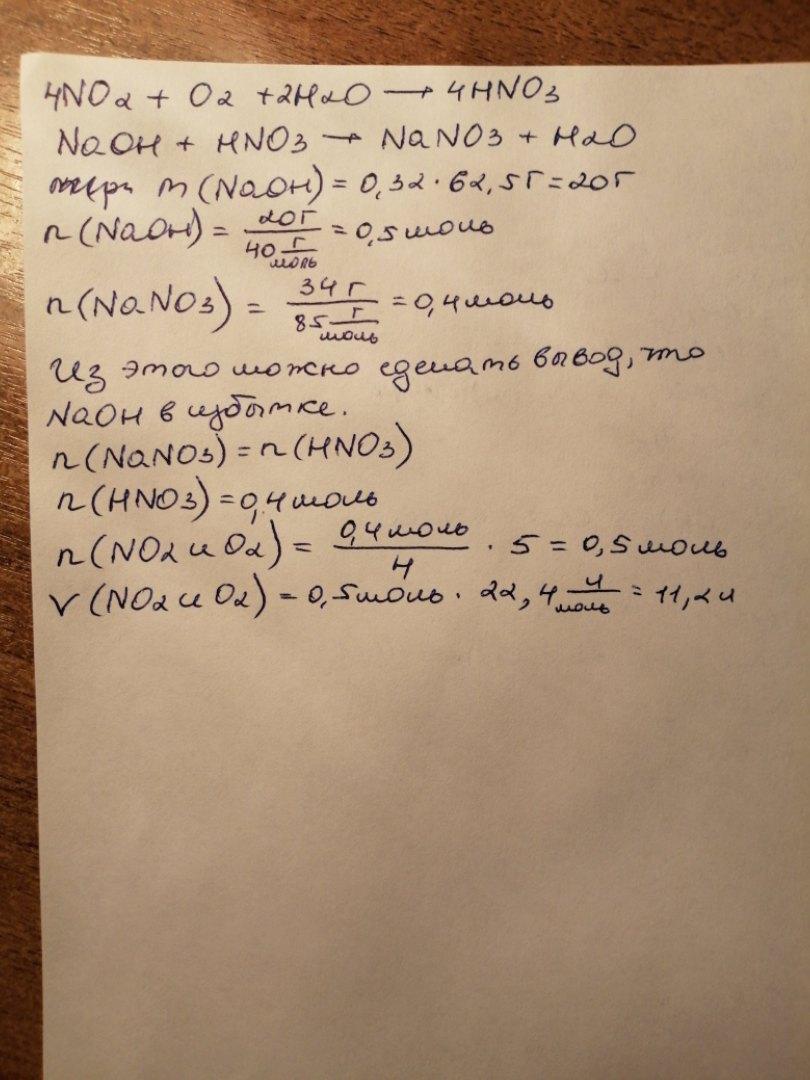 4NO2 + O2 + 2H2O → 4HNO3
NaOH + HNO3 → NaNO3 + H2O
m (NaOH) = 0,32 · 62,5г = 20г
n (NaOH) = 20г / 40 г/моль = 0,5 моль
n (NaNO3) = 34 г / 85 г/моль = 0,4 моль
Из этого можно сделать вывод, что
NaOH в избытке.
n (NaNO3) = n (HNO3)
n (HNO3) = 0,4 моль
n (NO2 и O2) = 0,4 моль / 4 · 5 = 0,5 моль
V (NO2 и O2) = 0,5 моль · 22,4 л/моль = 11,2 л